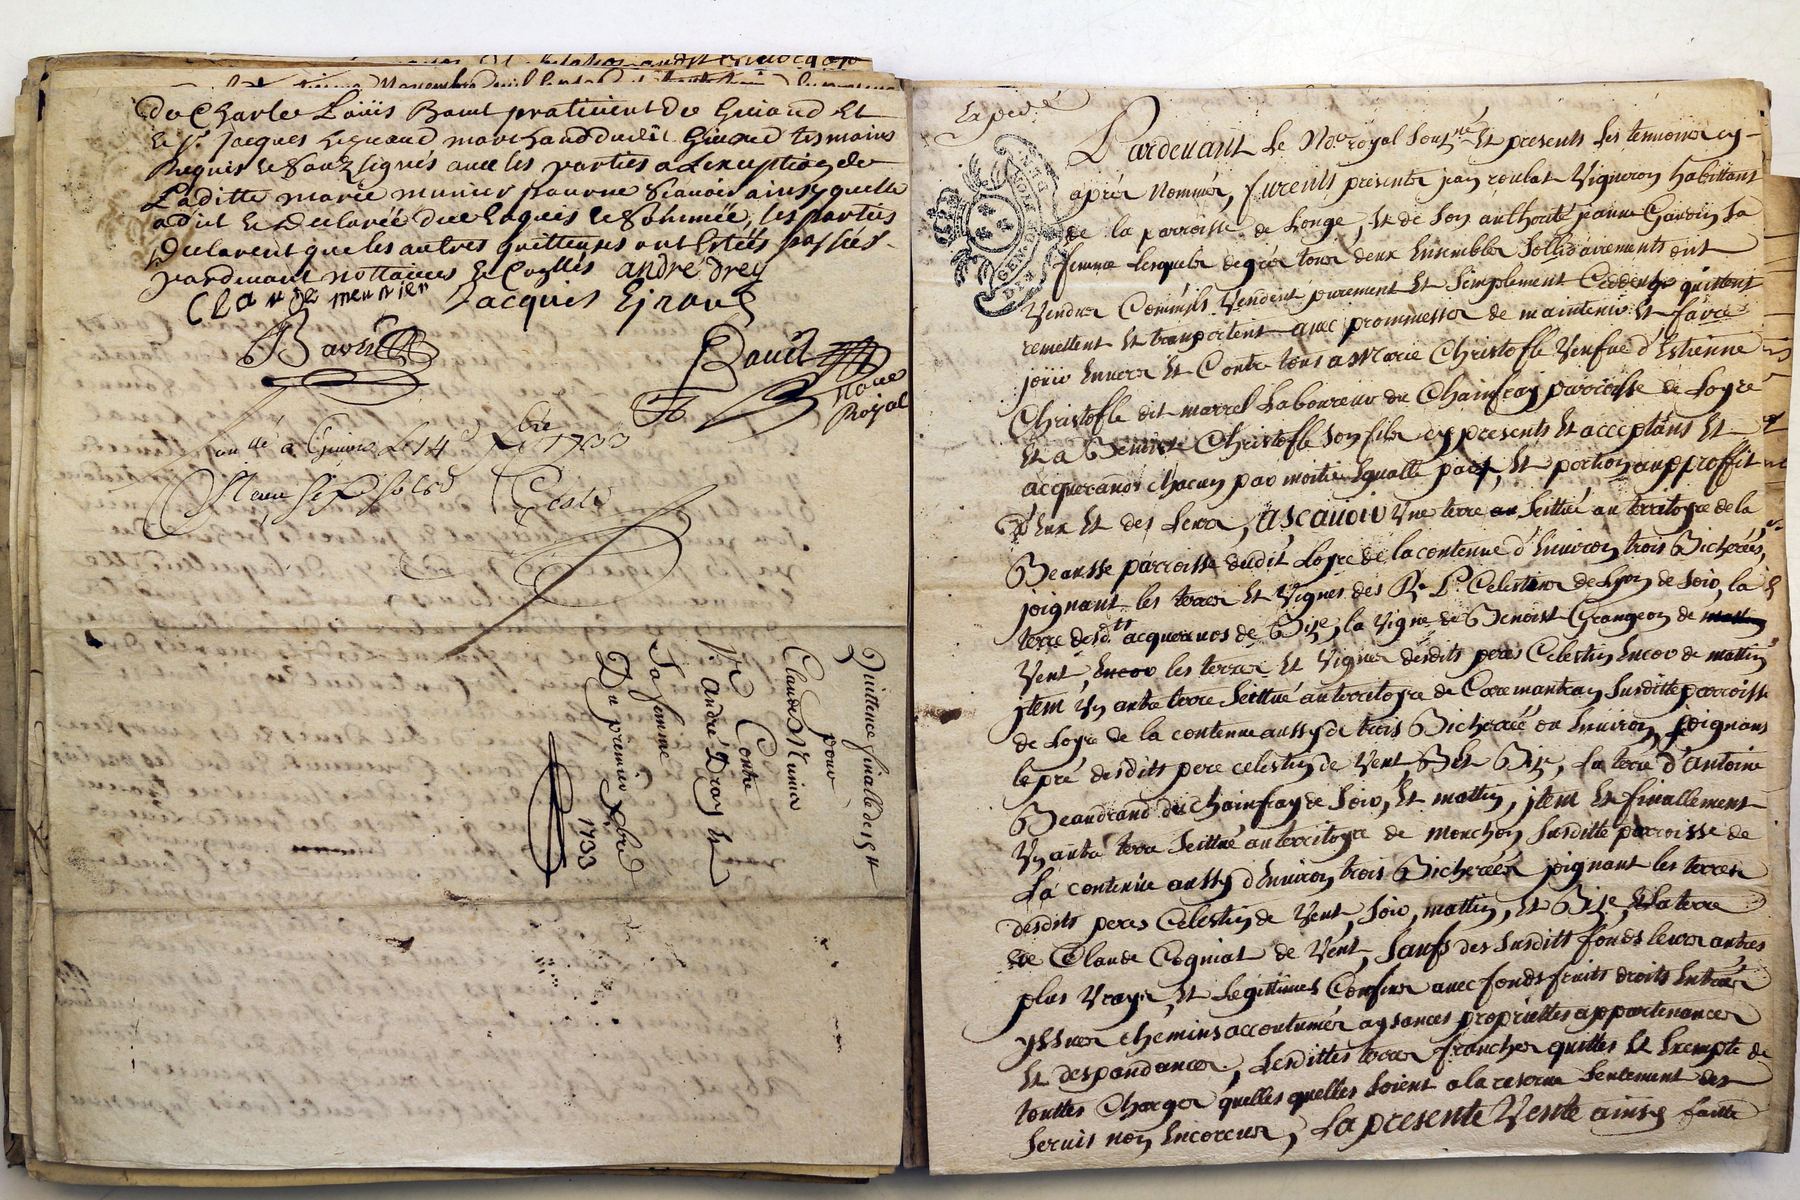 De Charle Loüis Bout pratitient de Giuord Et
le Sr. Jacques Eyraud marchand dudit Giuord tesmoins
Requis & Sousignés auec les parties a Lexception de
Laditte marie munier pour ne Scauoir ainsy quelle
a dit & declarée due Enquis & Sommée, les parties
Declarent que les autres quittenses ont Estées passées
pardeuant nottaires & Coyllés andré drey
Claude meunier Jacques Ejraud
Bavet
Bouit
Noue
Royal
a Giuors Le 14e Xbre 1733
Quittence finalle de 15 tt
pour
Claude Munier
Contre
Sr andré Dray &
Sa femme
Du premier Xbre
1733
Pardeuant Le Nore royal Souzné Et presents Les temoins cy
aprés Nommés, furents presents jean roulat Vigneron habittant
de la parroisse de Longe, Et de Son authorité janne Gaudin Sa
femme Lesquels de gré tous deux Ensembles Sollidairements ont
Vendus Commils Vendent purement Et Simplement Ceddent quittent
remettent Et transportent auec prommesses de maintenir Et faire
joüir Enuers Et Contre tous a Marie Christofle Venfue d'Estienne
Christofle dit marrel Laboureur du Chainfray parroisse de Loyre
Et a Benoist Christofle Son fils cy presents Et acceptans Et
acquerands chacun par moitie Egualle part, Et portion au proffit
d'Eux Et des Leurs, ASCAUOIR Une terre Scittué au territoyre de la
Beausse parroisse dudit Loyre de la contenue d'Enuiron trois Bicherées,
joignant les terres Et Vignes des R. P. Celestins de Lyon de Soir, la
terre desdts acquerands de Bize, la Vigne de Benoist Grangeon de
Vent, Encor les terres Et Vignes desdits peres Celestin Encor de mattin
jtem Vn autre terre Scittué au territoyre de Caremantran Susditte parroisse
de Loyre de la contenue aussy de trois Bicherée ou Enuiron, joignans
le pré desdits pere celestin de Vent, Et Bize, La terre d'Antoine
Beaudrand du Chainfray de Soir, Et mattin, jtem Et finallement
Vn autre terre Scittué au territoyre de Monchon Susditte parroisse de
La contenüe aussy d'Enuiron trois Bicherées joignant les terres
desdits peres Celestin de Vent, Soir, mattin, Et Bize, & La terre
de Claude Cogniat de Vent, Saufs des Susdits fonds leurs autres
plus Vrays, Et Legittimes Confins auec fonds fruits droits Entrées
yssues chemins accoutumés aysances proprietties appartenances
Et despendances, Lesdittes terres franches quittes Et Exempte de
touttes Charges quelles quelles Soient a la reserue Seulement des
Seruis non Encoreus, La presente Vente ainsy faitte